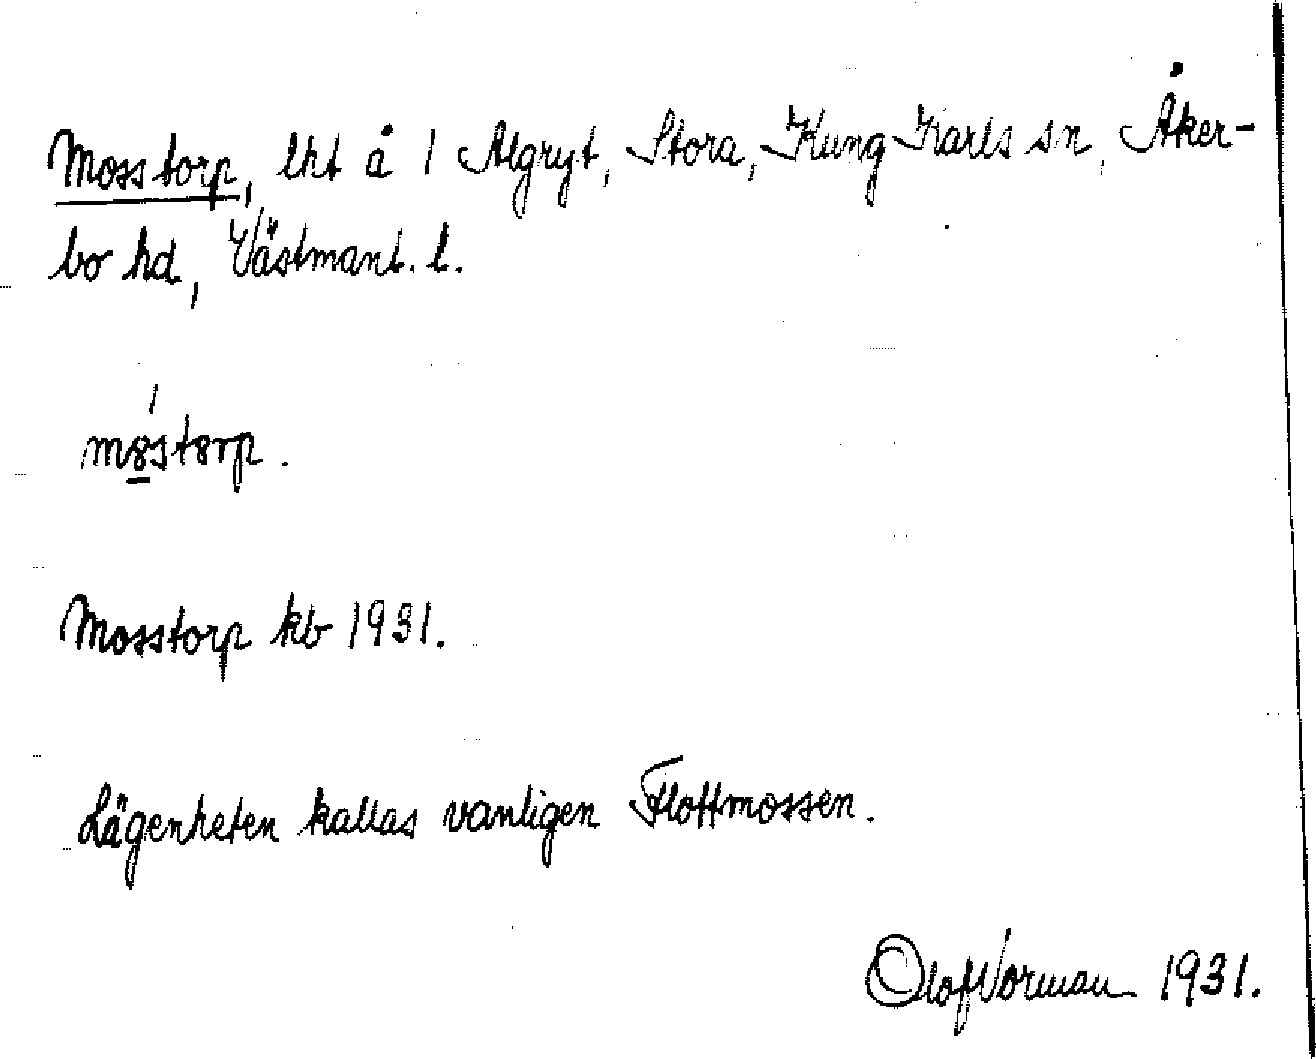 Mosstorp, lht å 1 Algryt, Stora, Kung Karls sn, Åker-
bo hd, Västmanl. l.
m8st8rp.
Mosstorp kb 1931.
Lägenheten kallas vanligen Flottmossen.
Olof Norman 1931.